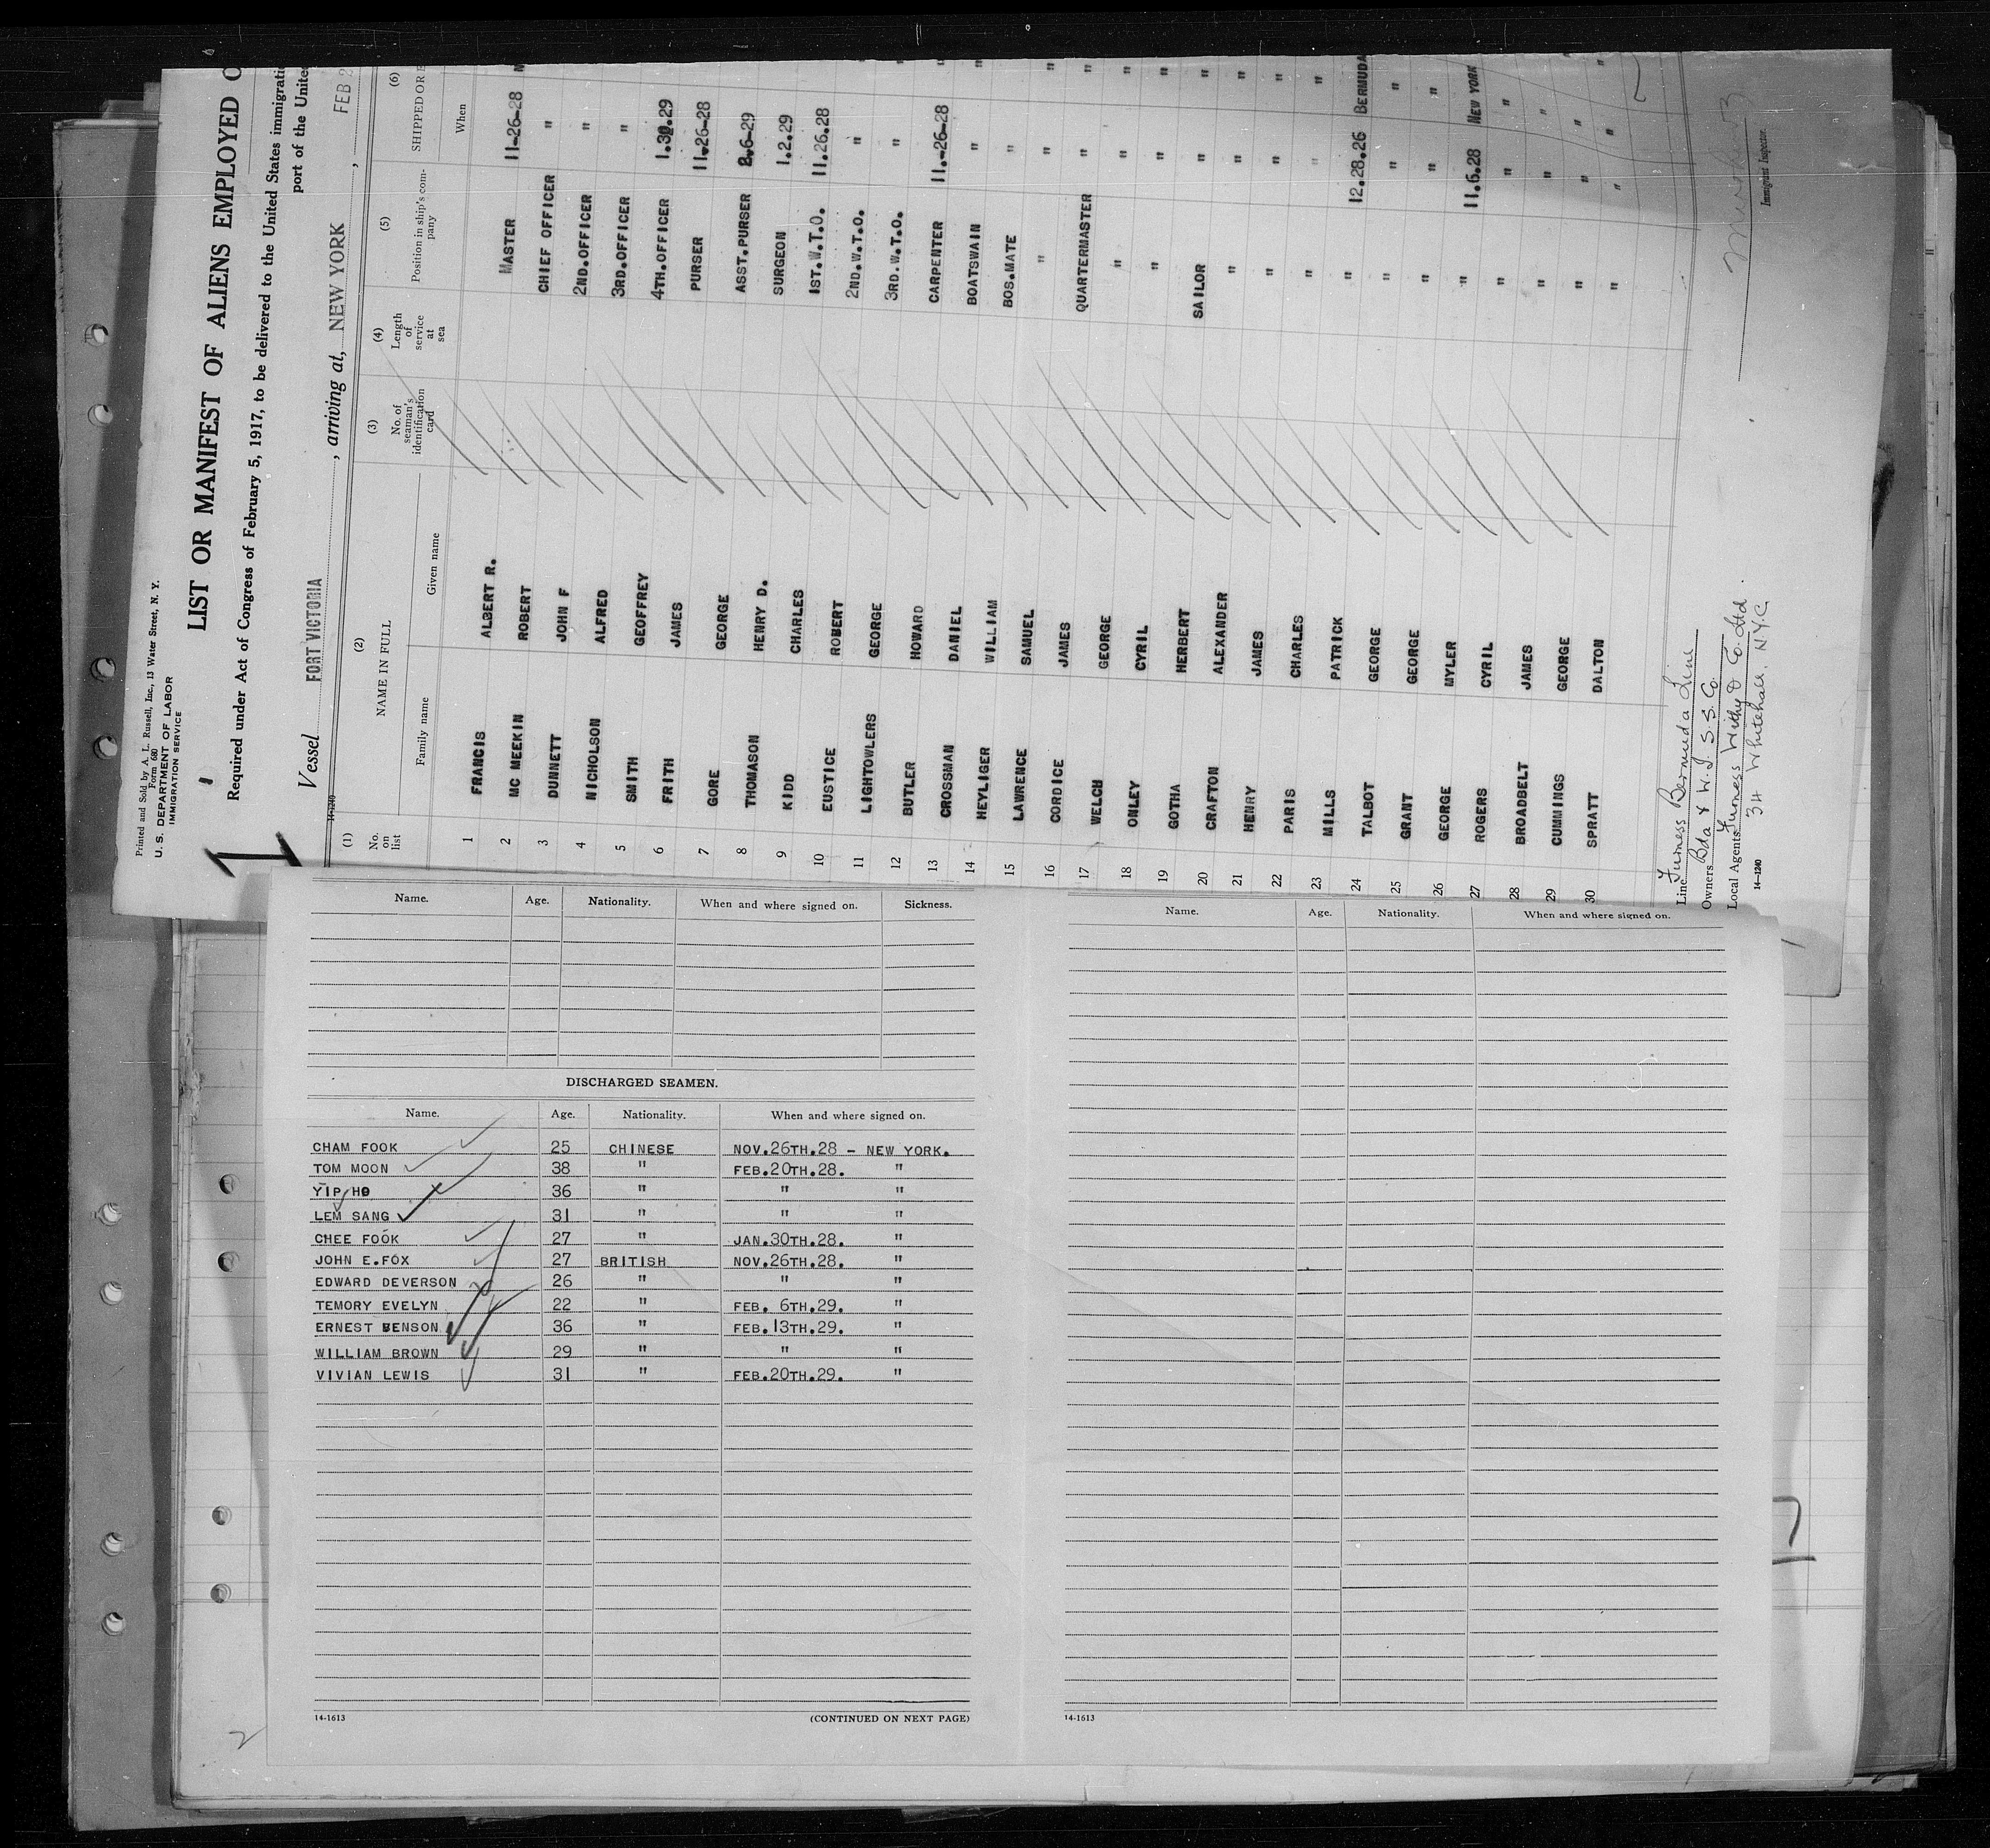 Printed and Sold by A. L. Russell, Inc., 13 Water Street, N. Y.
Form 680
U. S. DEPARTMENT OF LABOR
IMMIGRATION SERVICE
1
LIST OR MANIFEST OF ALIENS EMPLOYED O
Required under Act of Congress of February 5, 1917, to be delivered to the United States immigrati
port of the Unite
Vessel FORT VICTORIA , arriving at, NEW YORK , FEB 2
14-1240
(1) (2) (3) (4) (5) (6)
No. on list NAME IN FULL No. of seaman's identification card Length of service at sea Position in ship's company SHIPPED OR E
Family name Given name When
1 FRANCIS ALBERT R. MASTER 11-26-28 N
2 MC MEEKIN ROBERT CHIEF OFFICER "
3 DUNNETT JOHN F 2ND.OFFICER "
4 NICHOLSON ALFRED 3RD.OFFICER "
5 SMITH GEOFFREY 4TH.OFFICER 1.30.29 "
6 FRITH JAMES PURSER 11.26-28 "
7 GORE GEORGE ASST.PURSER 2.6-29 "
8 THOMASON HENRY D. SURGEON 1.2.29 "
9 KIDD CHARLES 1ST.W.T.O. 11.26.28 "
10 EUSTICE ROBERT 2ND.W.T.O. " "
11 LIGHTOWLERS GEORGE 3RD.W.T.O. " "
12 BUTLER HOWARD CARPENTER 11.-26-28 "
13 CROSSMAN DANIEL BOATSWAIN " "
14 HEYLIGER WILLIAM BOS.MATE " "
15 LAWRENCE SAMUEL " " "
16 CORDICE JAMES QUARTERMASTER " "
17 WELCH GEORGE " " "
18 ONLEY CYRIL " " "
19 GOTHA HERBERT SAILOR " "
20 CRAFTON ALEXANDER " " "
21 HENRY JAMES " " "
22 PARIS CHARLES " " "
23 MILLS PATRICK " 12.28.26 BERMUDA
24 TALBOT GEORGE " " "
25 GRANT GEORGE " " "
26 GEORGE MYLER " 11.6.28 NEW YORK
27 ROGERS CYRIL " " "
28 BROADBELT JAMES " " "
29 CUMMINGS GEORGE " " "
30 SPRATT DALTON " " "
Line Furness Bermuda Line
Owners Bda & W.I. S.S. Co.
Local Agents Furness Withy & Co. Ltd.
34 Whitehall. N.Y.C
14-1240
Immigrant Inspector.
Name. Age. Nationality. When and where signed on. Sickness.
DISCHARGED SEAMEN.
Name. Age. Nationality. When and where signed on.
CHAM FOOK 25 CHINESE NOV.26TH.28 - NEW YORK.
TOM MOON 38 " FEB.20TH.28. "
YIP HO 36 " " "
LEM SANG 31 " " "
CHEE FOOK 27 " JAN.30TH.28. "
JOHN E.FOX 27 BRITISH NOV.26TH.28. "
EDWARD DEVERSON 26 " " "
TEMORY EVELYN 22 " FEB. 6TH.29. "
ERNEST BENSON 36 " FEB.13TH.29. "
WILLIAM BROWN 29 " " "
VIVIAN LEWIS 31 " FEB.20TH.29. "
14-1613 (CONTINUED ON NEXT PAGE)
Name. Age. Nationality. When and where signed on.
14-1613
2